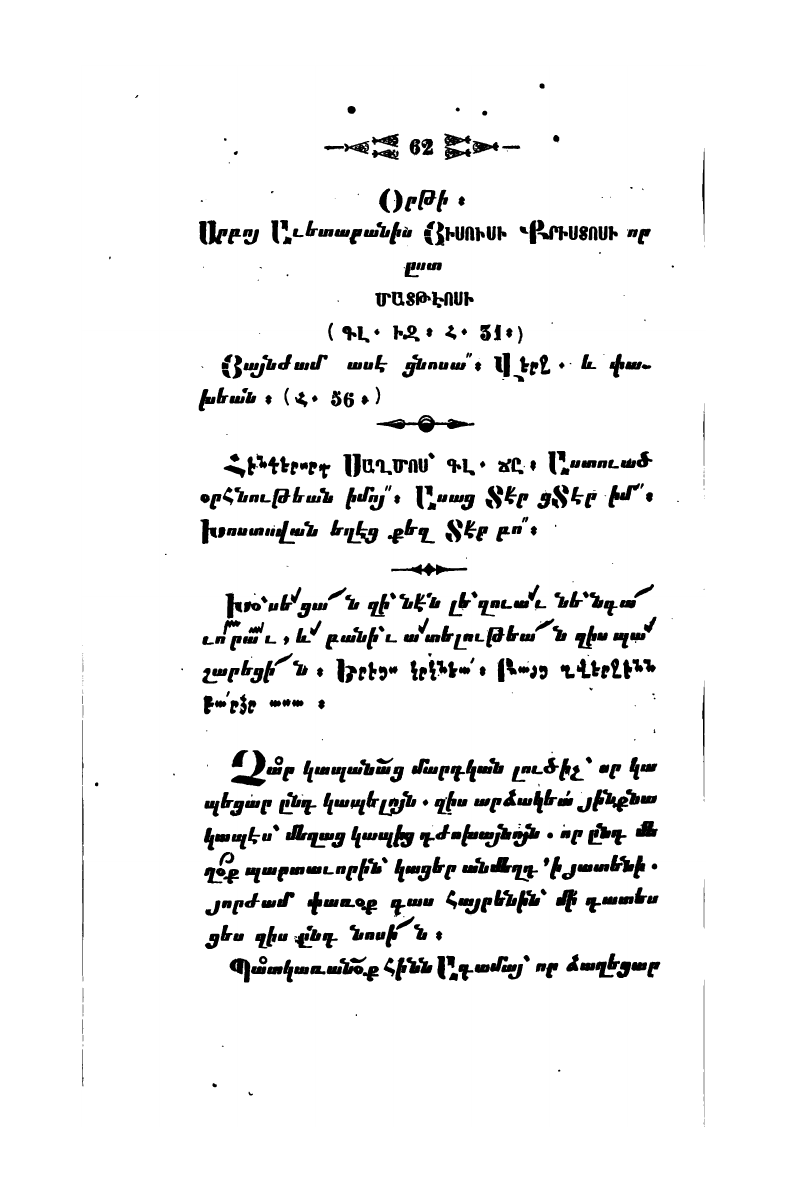 62
Օրթի ։
Սրբոյ Աւետարանին ՅԻՍՈՒՍԻ ՔՐԻՍՏՈՍԻ որ
ըստ
ՄԱՏԹԷՈՍԻ
( ԳԼ․ ԻԶ ։ Հ․ 31։)
Յայնժամ ասէ ցնոսա՛՛։ Վերջ․ և փա֊
խեան ։ (Հ․ 56։)
Հինգերորդ ՍԱՂՄՈՍ՝ ԳԼ․ ՃԸ ։ Աստուած
օրհնութեան իմոյ՛՛։ Ասաց Տէր ցՏէր իմ՛՛։
Խոստովան եղէց քեզ Տէր բո՛՛։
շարեցի՜ն ։ Երէցս կրկնէ՛ ։ Բայց զվերջինն
Զա̊ր կապանա̈ց մարդկան լուծիչ՝ որ կա
պեցար ընդ կապելոյն․ զիս արձակեա՛ յինքնա
կապէս՝ մեղաց կապից դժոխայնոյն․ որ ընդ մե
ղօք պարտաւորին՝ կացեր անմեղդ ՚ի յատենի․
յորժամ փառօք գաս Հայրենին՝ մի՛ դատես
ցես զիս ընդ նոսի՜ն ։
Պա̊տկառանօք Հինն Ադամայ՝ որ ճաղեցար